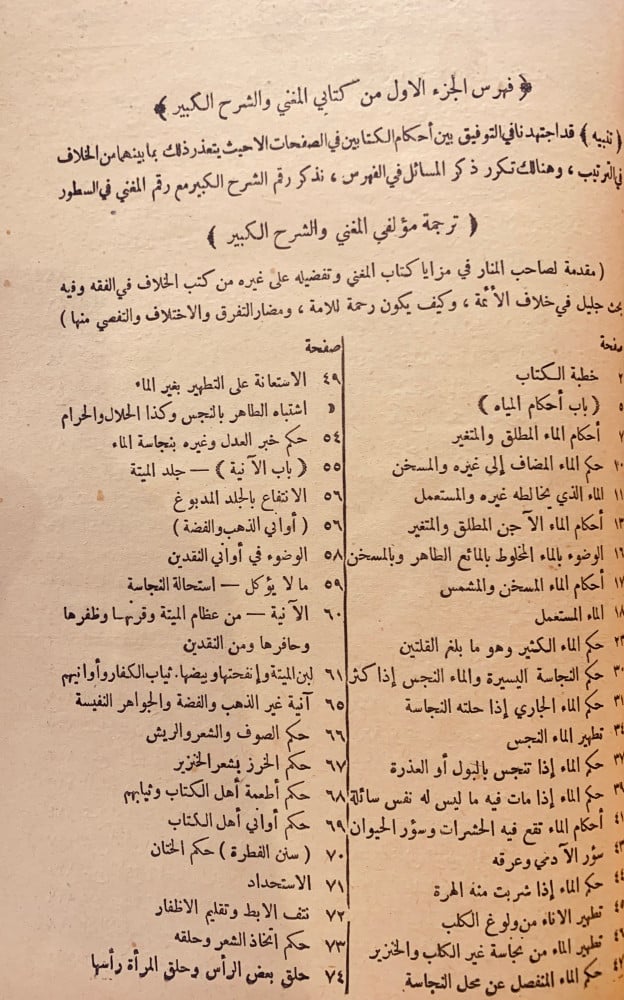 ﴿ فهرس الجزء الاول من كتابي المغني والشرح الكبير ﴾
( تنبيه ) قد اجتهدنا في التوفيق بين أحكام الكتابين في الصفحات الا حيث يتعذر ذلك بما بينهما من الخلاف
في الترتيب ، وهنالك تكرر ذكر المسائل في الفهرس ، نذكر رقم الشرح الكبير مع رقم المغني في السطور
( ترجمة مؤلفي المغني والشرح الكبير )
( مقدمة لصاحب المنار في مزايا كتاب المغني وتفضيله على غيره من كتب الخلاف في الفقه وفيه
بحث جليل في خلاف الأئمة ، وكيف يكون رحمة للامة ، ومضار التفرق والاختلاف والتفصي منها )
صفحة
٢ خطبة الكتاب
٥ ( باب أحكام المياه )
٧ أحكام الماء المطلق والمتغير
١٠ حكم الماء المضاف إلى غيره والمسخن
١١ الماء الذي يخالطه غيره والمستعمل
١٣ أحكام الماء الآجن المطلق والمتغير
١٦ الوضوء بالماء المخلوط بالمائع الطاهر وبالمسخن
١٧ أحكام الماء المسخن والمشمس
١٨ الماء المستعمل
٢٣ حكم الماء الكثير وهو ما بلغ القلتين
٣٠ حكم النجاسة اليسيرة والماء النجس إذا كثر
٣١ حكم الماء الجاري إذا حلته النجاسة
٣٤ تطهير الماء النجس
٣٧ حكم الماء إذا تنجس بالبول أو العذرة
٣٩ حكم الماء إذا مات فيه ما ليس له نفس سائلة
٤١ أحكام الماء تقع فيه الحشرات وسؤر الحيوان
٤٣ سؤر الآدمي وعرقه
٤٤ حكم الماء إذا شربت منه الهرة
٤٥ تطهير الاناء من ولوغ الكلب
٤٦ تطهير الماء من نجاسة غير الكلب والخنزير
٤٧ حكم الماء المنفصل عن محل النجاسة
صفحة
٤٩ الاستعانة على التطهير بغير الماء
» اشتباه الطاهر بالنجس وكذا الحلال والحرام
٥٤ حكم خبر العدل وغيره بنجاسة الماء
٥٥ ( باب الآنية ) — جلد الميتة
٥٦ الانتفاع بالجلد المدبوغ
٥٦ ( أواني الذهب والفضة )
٥٨ الوضوء في أواني النقدين
٥٩ ما لا يؤكل — استحالة النجاسة
٦٠ الآنية — من عظام الميتة وقرنها وظفرها
وحافرها ومن النقدين
٦١ لبن الميتة وإنفحتها وبيضها . ثياب الكفار وأوانيهم
٦٥ آنية غير الذهب والفضة والجواهر النفيسة
٦٦ حكم الصوف والشعر والريش
٦٧ حكم الخرز بشعر الخنزير
٦٨ حكم أطعمة أهل الكتاب وثيابهم
٦٩ حكم أواني أهل الكتاب
٧٠ ( سنن الفطرة ) حكم الختان
٧١ الاستحداد
٧٢ نتف الابط وتقليم الاظفار
٧٣ حكم اتخاذ الشعر وحلقه
٧٤ حلق بعض الرأس وحلق المرأة رأسها